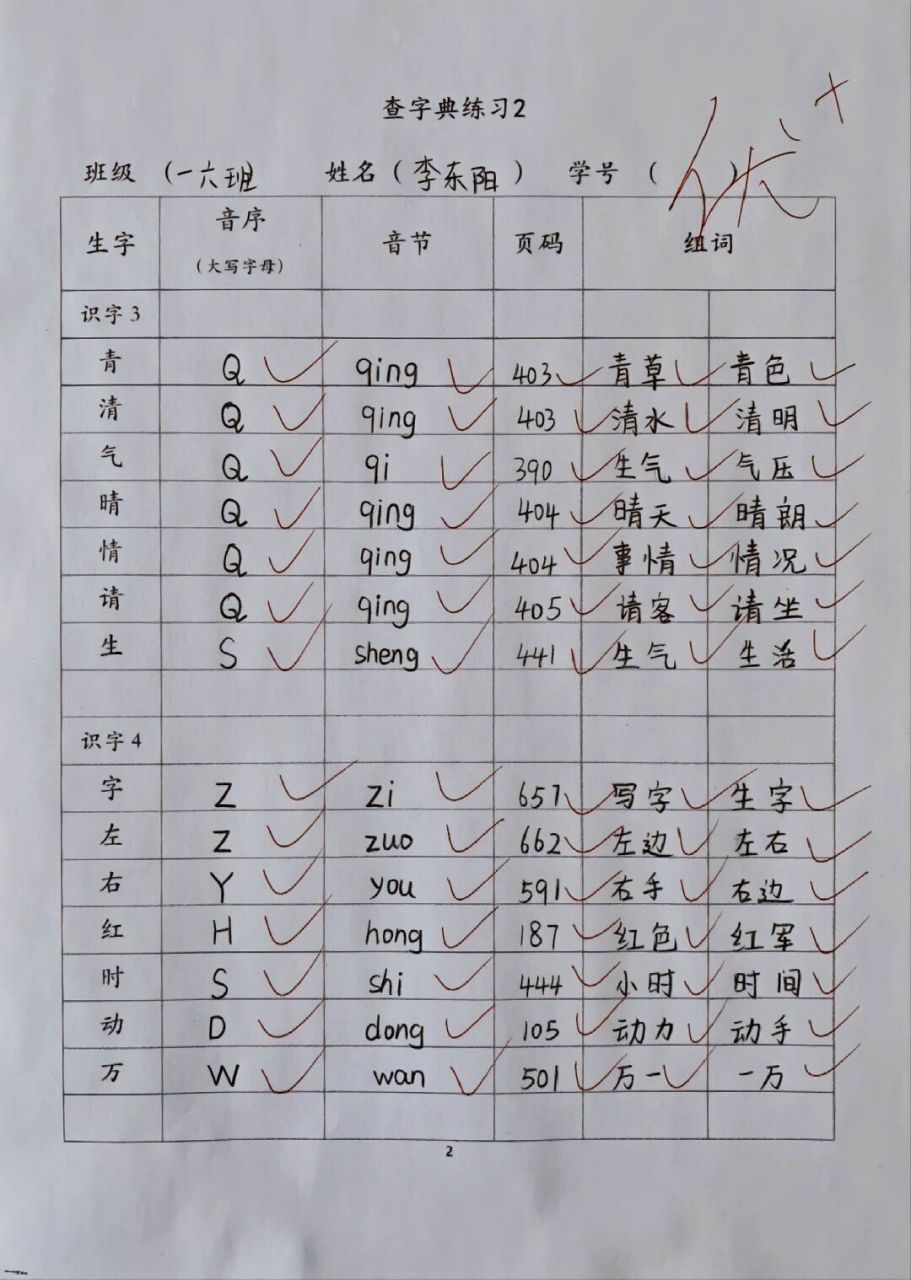 查字典练习2
班级 (一六班) 姓名 (李东阳) 学号 ( )
优+
生字 音序 (大写字母) 音节 页码 组词
识字3
青 Q qing 403 青草 青色
清 Q qing 403 清水 清明
气 Q qi 390 生气 气压
晴 Q qing 404 晴天 晴朗
情 Q qing 404 事情 情况
请 Q qing 405 请客 请坐
生 S sheng 441 生气 生活
识字4
字 Z zi 657 写字 生字
左 Z zuo 662 左边 左右
右 Y you 591 右手 右边
红 H hong 187 红色 红军
时 S shi 444 小时 时间
动 D dong 105 动力 动手
万 W wan 501 万一 一万
2